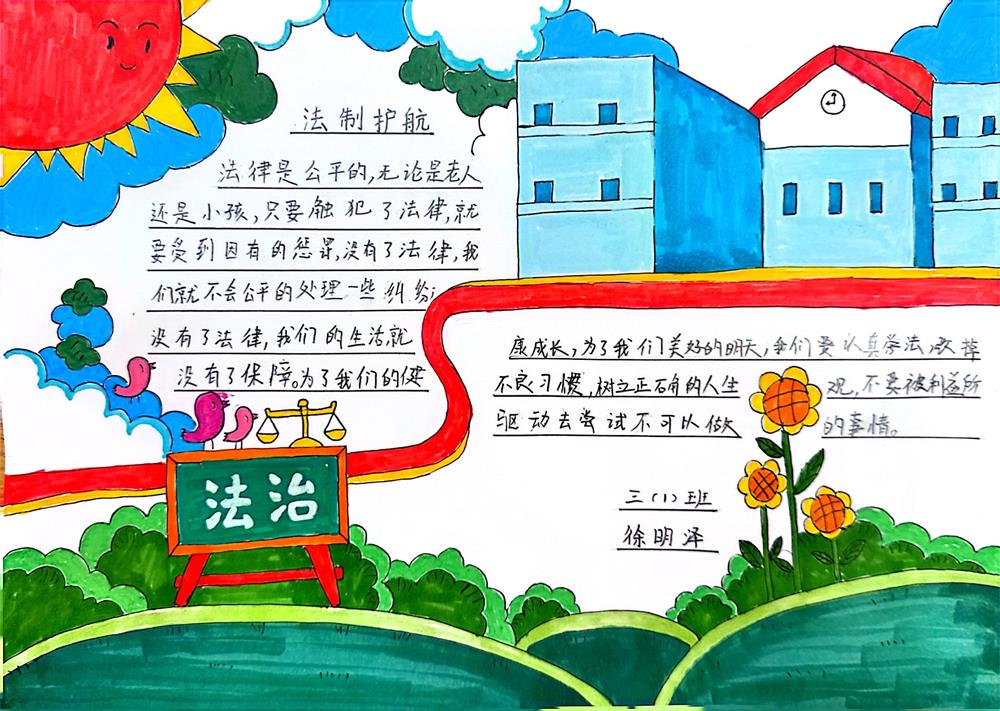 法制护航
法律是公平的,无论是老人
还是小孩,只要触犯了法律,就
要受到因有的惩罪,没有了法律,我
们就不会公平的处理一些纠纷,
没有了法律,我们的生活就
没有了保障。为了我们的健
康成长,为了我们美好的明天,我们要认真学法,改掉
不良习惯,树立正确的人生观,不要被利益所
驱动去尝试不可以做的事情。
三(1)班
徐明泽
法治